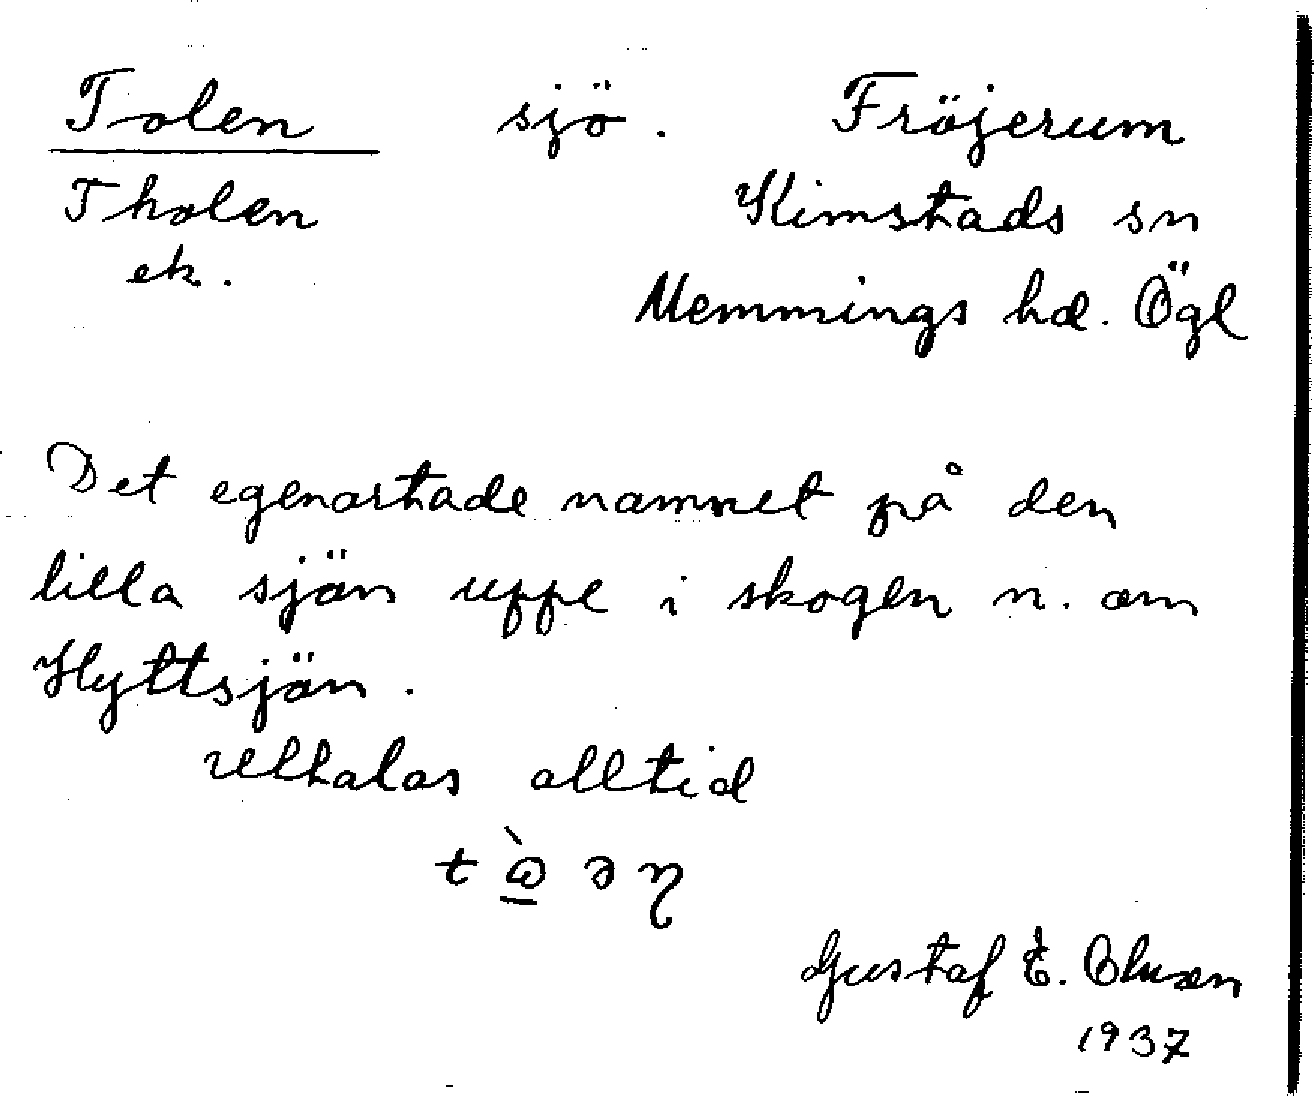 Tolen sjö. Fröjerum
Tholen Kimstads sn
ek. Memmings hd. Ögl
Det egenartade namnet på den
lilla sjön uppe i skogen n. om
Hyttsjön.
uttalas alltid
Gustaf E. Olsson
1937